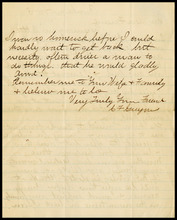 snow so homesick before I could
hardly wait to get back but
necesity often drives a man to
do things that he would gladly
avoid
Remember me to your Wife & Family
& believe me to be
Very Truly Your Friend